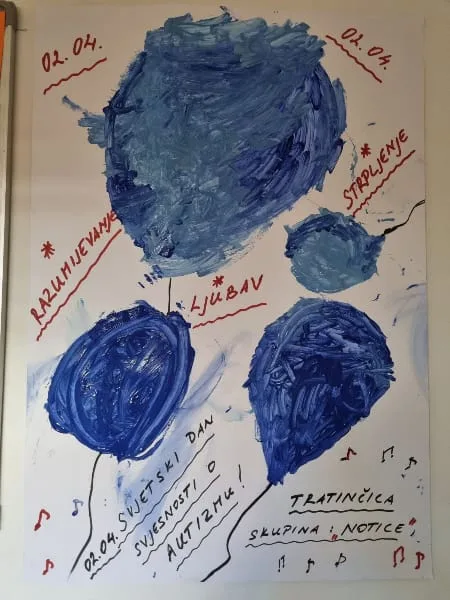 02.04.
02.04.
* STRPLJENJE
* RAZUMIJEVANJE
* LJUBAV
02.04. SVJETSKI DAN
SVJESNOSTI O
AUTIZMU!
TRATINČICA
SKUPINA: "NOTICE"